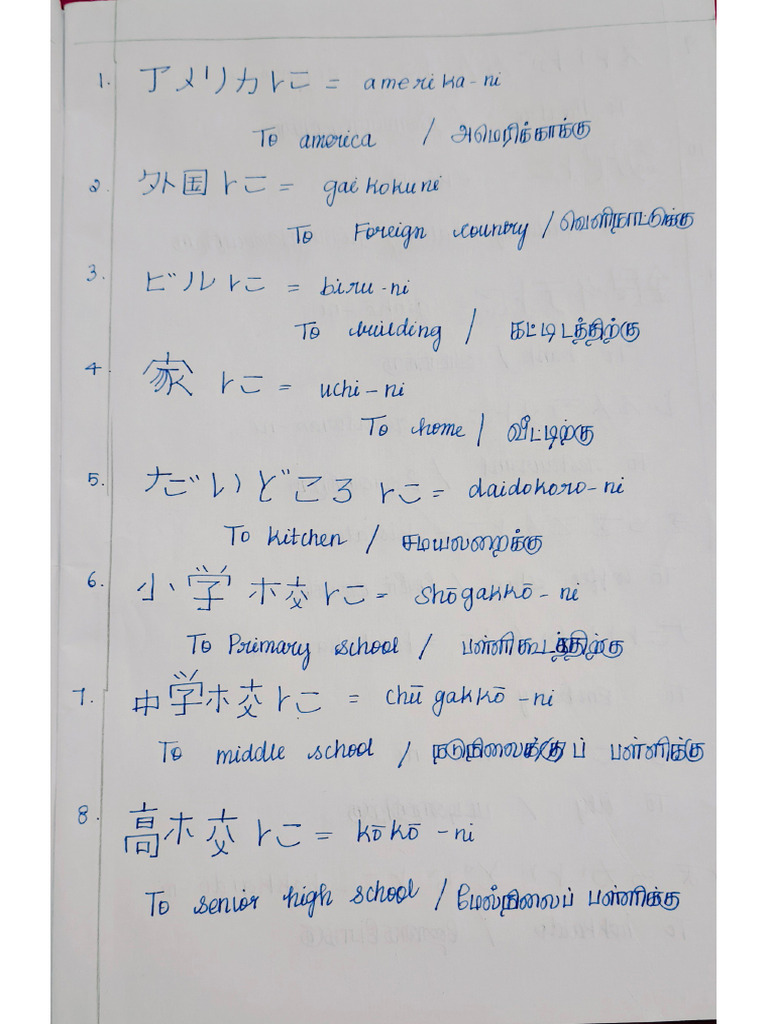 1. アメリカに = amerika-ni
To america / அமெரிக்காக்கு
2. 外国に = gaikokuni
To Foreign country / வெளிநாட்டுக்கு
3. ビルに = biru-ni
To building / கட்டிடத்திற்கு
4. 家に = uchi-ni
To home / வீட்டிற்கு
5. だいどころに = daidokoro-ni
To kitchen / சமயலறைக்கு
6. 小学校に = shōgakkō-ni
To Primary school / பள்ளிகூடத்திற்கு
7. 中学校に = chūgakkō-ni
To middle school / நடுநிலைக்குப் பள்ளிக்கு
8. 高校に = kōkō-ni
To senior high school / மேல்நிலைப் பள்ளிக்கு